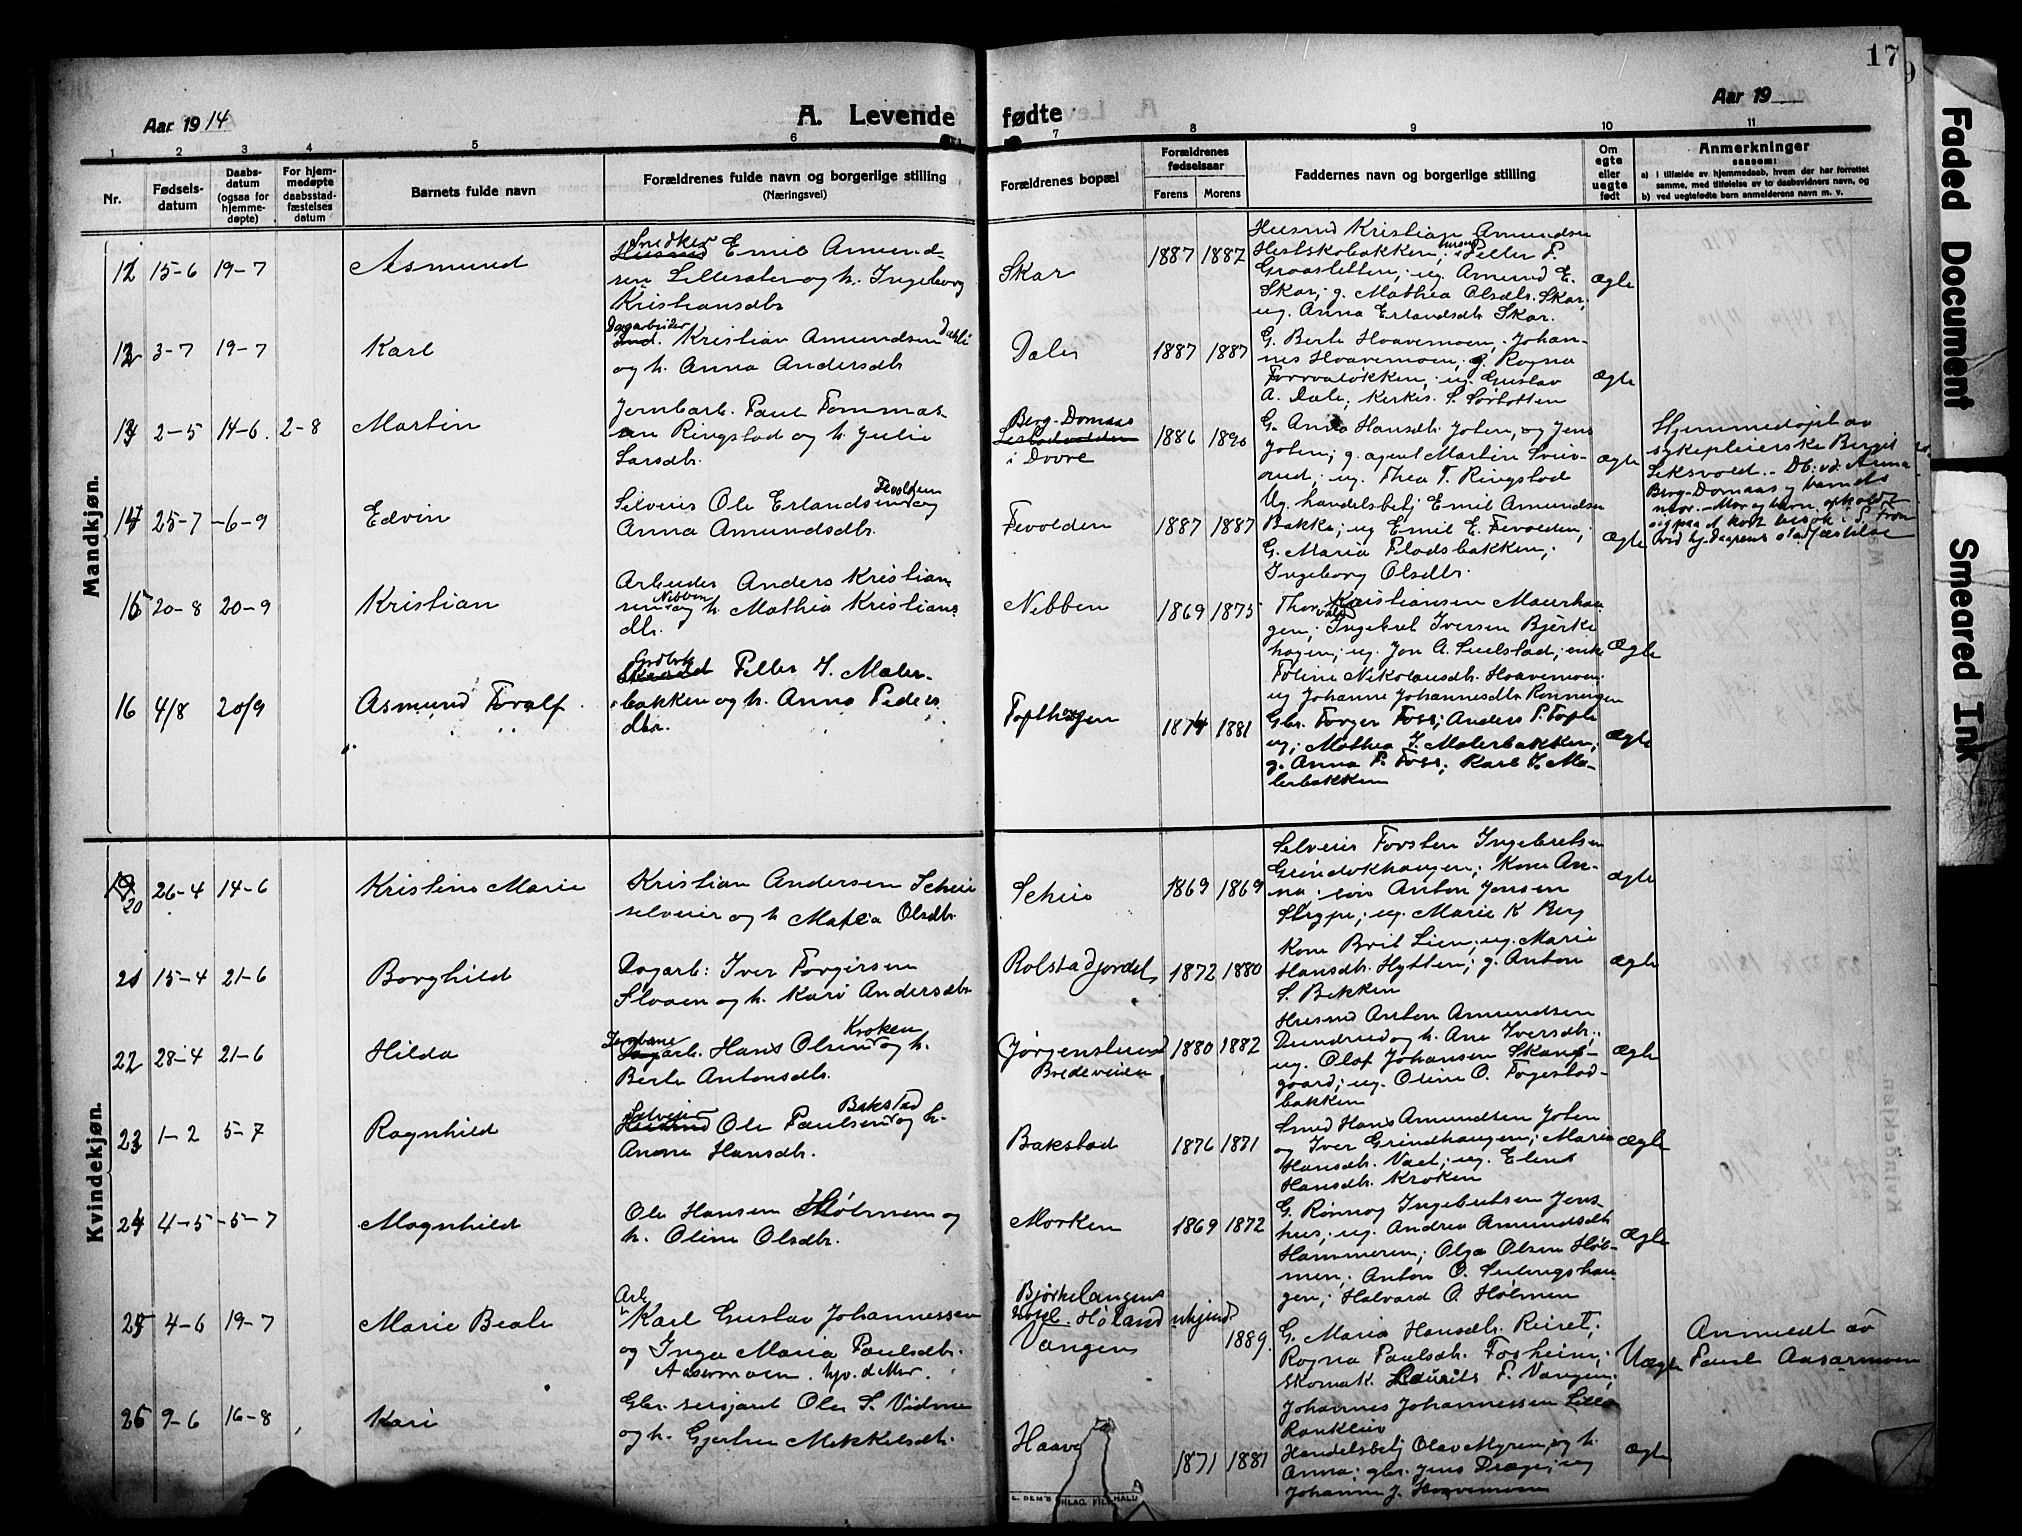 17
Aar 1914
A. Levende fødte
Aar 19
1 2 3 4 5 6 7 8 9 10 11
Nr.
Fødsels-
datum
Daabs-
datum
(ogsaa for
hjemme-
døpte)
For hjem-
medøpte
daabsstad-
fæstelses
datum
Barnets fulde navn
Forældrenes fulde navn og borgerlige stilling
(Næringsvei)
Forældrenes bopæl
Forældrenes
fødselsaar
Farens Morens
Faddernes navn og borgerlig stilling
Om
egte
eller
uegte
født
Anmerkninger
saasom:
a) i tilfælde av hjemmedaab, hvem der har forrettet
samme, med tilføielse av to daabsvidners navn, og
b) ved uegtefødte barn anmelderens navn m. v.
Mandkjøn.
12 15-6 19-7 Asmund
Snedker Emil Amund-
sen Lillesæter og h. Ingeborg
Kristiansdtr
Skar 1887 1887
Husmd Kristian Amundsen
Hestskobakken; Petter P.
Graasletten; ug. Amund E.
Skar; g. Mathea Olsdtr. Skar;
ug. Anna Erlandsdtr Skar.
Ægte
12 3-7 19-7 Karl
Dagarbeider
Ind. Kristian Amundsen Dahle
og h. Anna Andersdtr
Dale 1887 1887
G. Berte Haavemoen; Johan-
nes Haavemoen; g. Ragna
ug. Gustav
A. Dale; Kirkes. S. Sørtotten
Ægte
13 2-5 14-6. 2-8 Martin
Jernbarb. Paul Tommas-
sen Ringstad og h. Julie
Larsdtr.
Berg-Domaas
i Dovre
1886 1890
G. Anna Hansdtr. Joten, og Jens
Joten; g. agent Martin
rud; ug. Thea T. Ringstad
Ægte
Hjemmedøpt av
sykepleierske Bergit
Leksvold. - Db. vd. Anna
Berg-Domaas og barnets
mor. - Mor og barn opholdt
sig paa et kort besøk i S. Fron
ved hj. daapens stadfæstelse
14 25-7 -6-9 Edvin
Fevolden
Selveier Ole Erlandsen og
Anna Amundsdtr.
Fevolden 1887 1887
Ug. handelsbetj Emil Amundsen
Bakke; ug Emil E. Fevolden;
G. Maria Flodsbakken;
Ingeborg Olsdtr.
Ægte
15 20-8 20-9 Kristian
Arbeider Anders Kristian-
sen Nibben og h. Mathia Kristians
dtr.
Nibben 1869 1875
Thorvald Kristiansen Maurhau
gen; Ingebret Iversen Bjørke
hagen; ug. Jon A. ; enke
Toline Nikolausdtr. Haavemoen;
ug Johanne Johannesdtr Rønningen
Ægte
16 4/8 20/9 Asmund Toralf
Petter J. Maler-
bakken og h. Anna Peders
dtr.
Tofthagen 1874 1881
Gbr. Torger Foss; Anders P. Tofte
ug; Mathea J. Malerbakken;
g. Anna P. Foss; Karl J. Ma-
lerbakken
Ægte
Kvindekjøn.
19
20 26-4 14-6 Kristine Marie
Kristian Andersen Scheie
selveier og h Matea Olsdtr.
Scheie 1869 1869
Selveier Torsten Ingebretsen
Grindakhaugen; Kone An-
na; Anton Jonsen
Stryge; ug. Marie K Berg
Ægte
21 15-4 21-6 Borghild
Dagarb: Iver Torgersen
Sloaen og h. Kari Andersdtr
Rolstadjordet 1872 1880
Kone Brit Lien; ug. Marie
Hansdtr. Hytten; g. Anton
S. Bekken
Ægte
22 28-4 21-6 Hilda
Jernbane
Dagarb. Hans Olsen Kroken og h.
Berte Antonsdtr.
Jørgenstuen
Bredeveien
1880 1882
Husmd Anton Amundsen
Rundrud og h. Ane Iversdtr.;
ug. Olaf Johansen Skans-
gaard; ug. Oline O. Fogestad-
bakken
Ægte
23 1-2 5-7 Ragnhild
Selveier
Husmd Ole Paulsen Bakstad og h.
Anne Hansdtr.
Bakstad 1876 1871
Smed Hans Amundsen Joten
og Iver Grindhaugen; Marie
Hansdtr. Vaet; ug. Elene
Hansdtr. Kroken
Ægte
24 4-5 -5-7 Magnhild
Ole Hansen Hølmen og
h. Oline Olsdtr.
Morken 1869 1872
G. Rønnog Ingebretsen Jens-
hus; ug. Andrea Amundsdtr
Hammeren; Olga Olsen Høl-
men; Anton O.
gen; Halvard O. Hølmen
Ægte
25 4-6 19-7 Marie Beate
Arb.
Karl Gustav Johannessen
og Inga Maria Paulsdtr.
Aasarmoen
Bjørkelangens
hotel. Høland
Vangen
ukjend 1889.
G. Maria Hansdtr. Ruset;
Ragna Paulsdtr. Forheim;
skomak. Laurits P. Vangen;
Johannes Johannessen Lille
Rankleiv
Uægte
Anmeldt av
Paul Aasarmoen
26 9-6 16-8 Kari
Gbr. sersjant Ole S. Vidme
og h. Gjertrue Mikkelsdtr.
Haave 1871 1881
Handelsbetj Olav Myren, og h.
Anna; gbr. Jens Dræge; ug
Johanne J. Haavemoen
Ægte
Faded Document
Smeared Ink